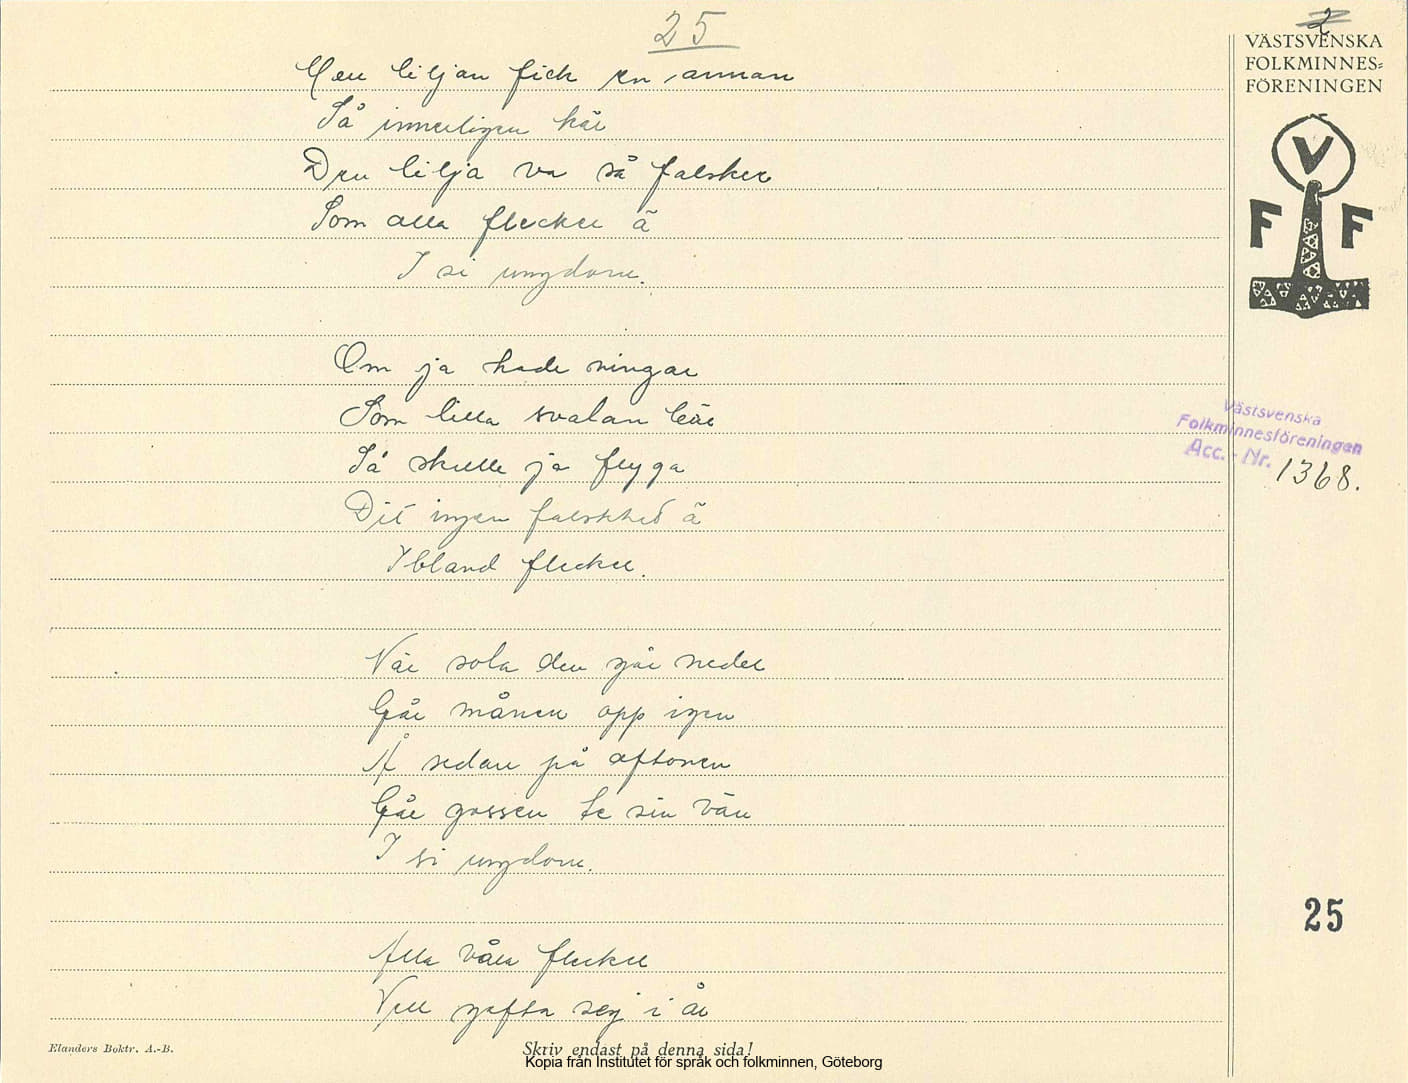 25
2
VÄSTSVENSKA
FOLKMINNES=
FÖRENINGEN
V
F F
Men liljan fick en annan
Så innerligen kär
Den lilja va så falsker
Som alla flecker ä
I si ungdom.
Om ja hade vingar
Som lilla svalan bär
Så skulle ja flyga
Dit ingen falskhed ä
Ibland flecker.
När sola den går neder
Går månen opp igen
Å sedan på aftonen
Går gossen te sin vän
I si ungdom.
Alla våra flecker
Vill gefta sej i år
Västsvenska
Folkminnesföreningen
Acc.-Nr. 1368.
25
Elanders Boktr. A.-B.
Skriv endast på denna sida!
Kopia från Institutet för språk och folkminnen, Göteborg